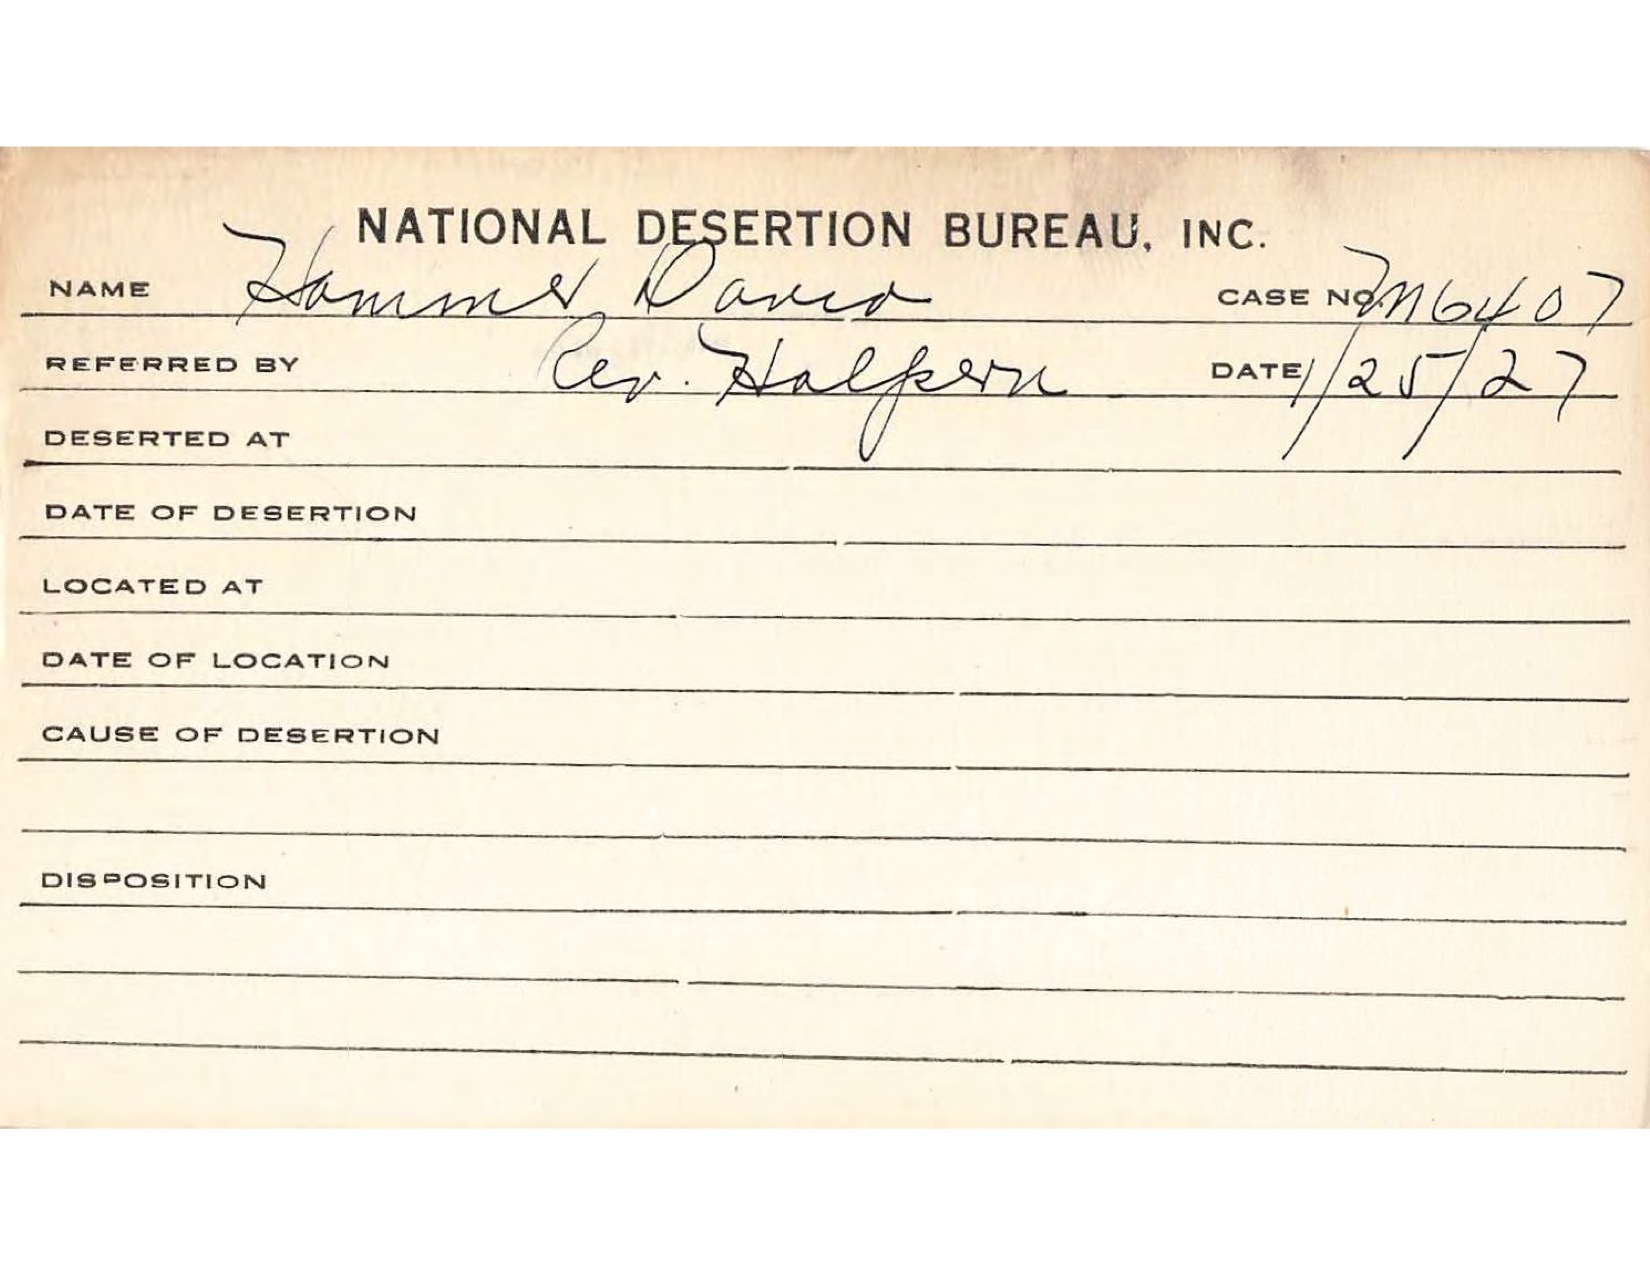 NATIONAL DESERTION BUREAU, INC.
NAME Hammer David CASE NO. M6407
REFERRED BY Rev. Halpern DATE 1/25/27
DESERTED AT
DATE OF DESERTION
LOCATED AT
DATE OF LOCATION
CAUSE OF DESERTION
DISPOSITION